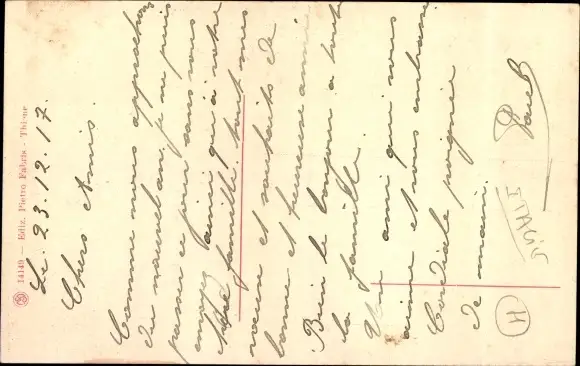 14149 — Ediz. Pietro Fabris - Thiene
Le. 23.12.17.
Chers Amis.
Comme nous approchons
du nouvel an. je ne puis
passer ce jour sans vous
envoyez ainsi qu'a votre
famille tout mes
voeux et souhaits de
bonne et heureuse année
Bien le bonjour a toute
la famille.
Un ami qui vous
aime et vous embrasse
Cordiale poignée
de main.
ITALIE
H